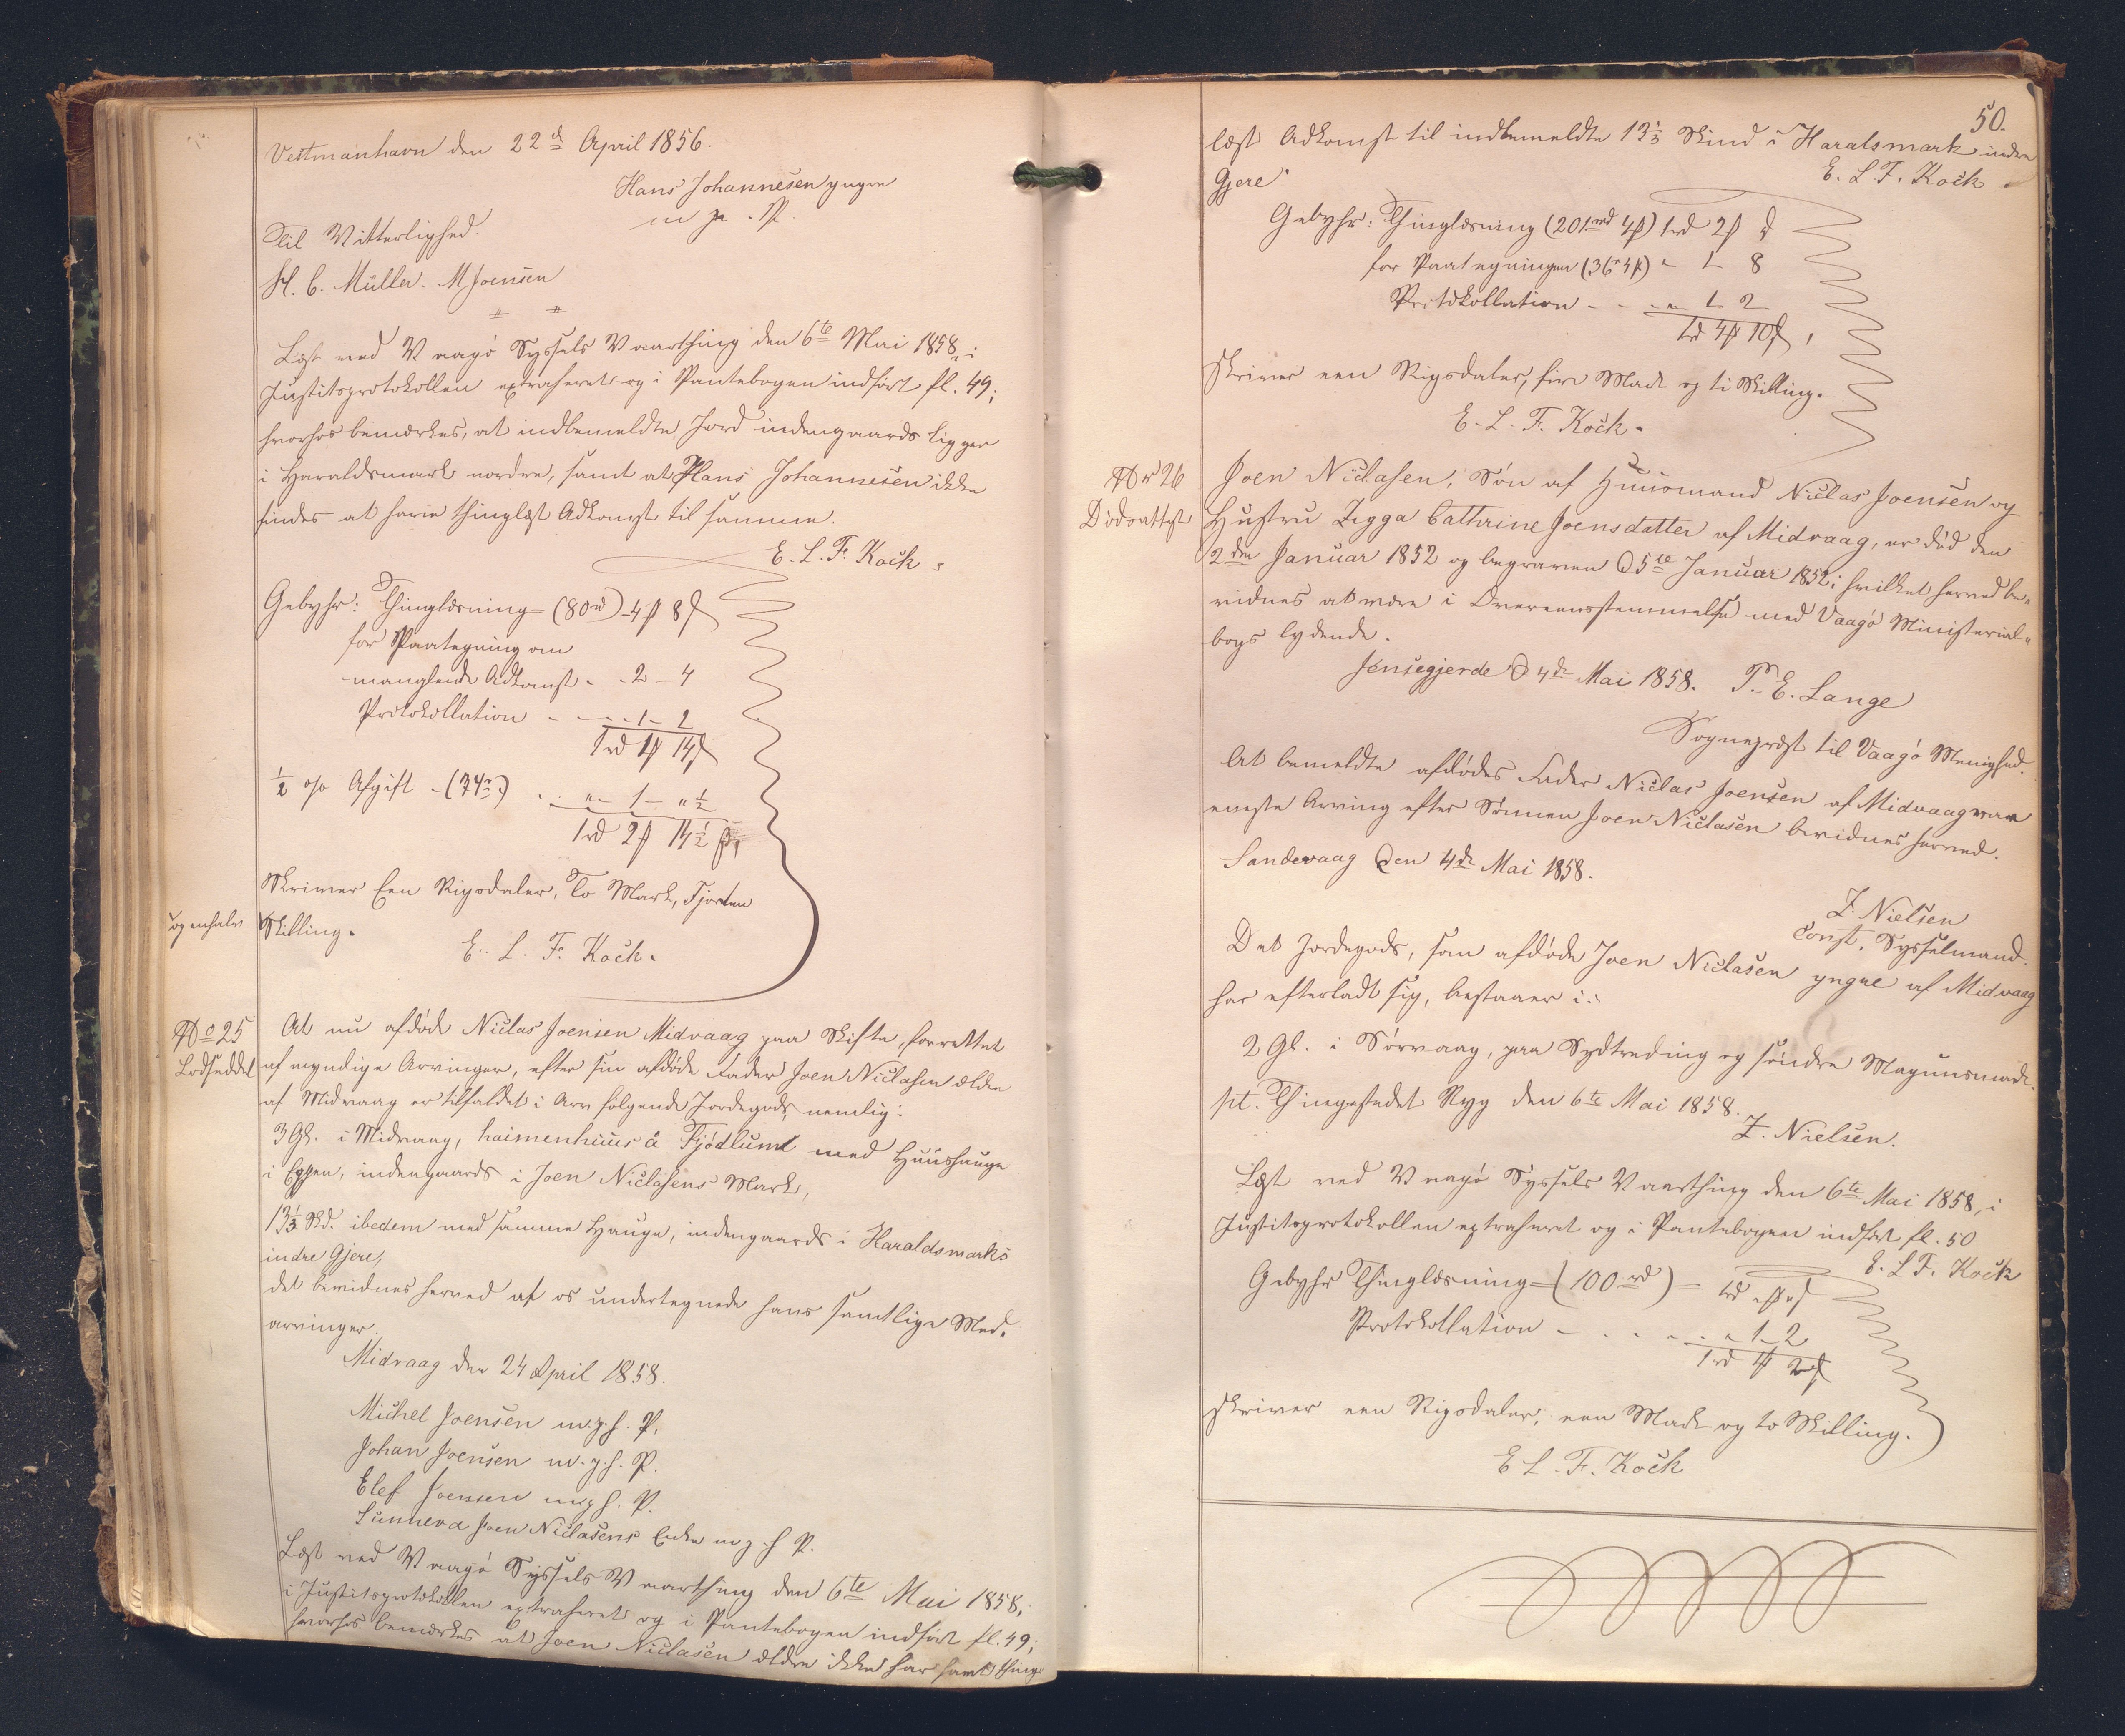 Vestmanhavn den 22de April 1856.
Hans Johannesen yngre
m. p. P.
Til Vitterlighed.
H. C. Müller. M Joensen
Læst ved Vaagø Syssels Vaarthing den 6te Mai 1858, i
Justitsprotokollen extraheret og i Pantebogen indført fl. 49;
hvorhos bemærkes, at indbemeldte Jord indengaards ligger
i Haraldsmark nordre, samt at Hans Johannesen ikke
findes at have thinglæst Adkomst til samme.
E. L. F. Koch.
Gebyhr: Thinglæsning (80rd) - 4 ß 8
for Paategning om
manglende Adkomst - - 2 - 4
Protokollation - - - - 1 - 2
1rd 1 14
½ o/o Afgift - (34rd) - - " - 1 - " ½
1rd 2 14½
Skriver Een Rigsdaler, To Mark, Fjorten
og enhalv Skilling.
E. L. F. Koch.
No 25
Lodseddel
At nu afdøde Niclas Joensen Midvaag paa Skifte, forrettet
af myndige Arvinger, efter sin afdøde Fader Joen Niclasen ældre
af Midvaag er tilfaldet i Arv følgende Jordegods nemlig:
3 Gl. i Midvaag, haimenhuus á Fjødlum med Huushauge
i Eyjen, indengaards i Joen Niclasens Mark,
13⅓ Skd. ibedem med samme Hauge, indengaards i Haraldsmarks
indre Gjere,
det bevidnes herved af os undertegnede hans samtlige Med-
arvinger.
Midvaag den 24 April 1858.
Michel Joensen m. p. h. P.
Johan Joensen m. p. h. P.
Elef Joensen m p h. P.
Sunneva Joen Niclasens Enke m p. h P.
Læst ved Vaagø Syssels Vaarthing den 6te Mai 1858,
i Justitsprotokollen extraheret og i Pantebogen indført fl. 49;
hvorhos bemærkes at Joen Niclasen ældre ikke har havt thing-
50.
læst Adkomst til indbemeldte 13⅓ Skind i Haralsmark indre
Gjere.
E. L. F. Koch
Gebyhr: Thinglæsning (201rd 4ß) 1rd 2ß
for Paategningen (36 4ß) " 1 8
Protokollation - - - " 1 2
1rd 4ß 10
skriver een Rigsdaler, fire Mark og ti Skilling.
E. L. F. Koch.
No 26
Dødsattest
Joen Niclasen, Søn af Huusmand Niclas Joensen og
Hustru Zigga Cathrine Joensdatter af Midvaag, er død den
2den Januar 1852 og begraven d 5te Januar 1852; hvilket herved be-
vidnes at være i Overeensstemmelse med Vaagø Ministerial-
bogs lydende.
Jensegjerde d 4de Mai 1858. P. E. Lange
Sognepræst til Vaagø Menighed.
At bemeldte afdødes Fader Niclas Joensen af Midvaag var
eneste Arving efter Sønnen Joen Niclasen bevidnes herved.
Sandevaag den 4de Mai 1858.
Z. Nielsen
Const. Sysselmand.
Det Jordegods, som afdøde Joen Niclasen yngre af Midvaag
har efterladt sig, bestaaer i:
2 Gl. i Sørvaag, paa Sydtrøding og søndre Magnusmark.
pt. Thingstedet Ryg den 6te Mai 1858.
Z. Nielsen.
Læst ved Vaagø Syssels Vaarthing den 6te Mai 1858, i
Justitsprotokollen extraheret og i Pantebogen indført fl. 50
E. L. F. Koch
Gebyhr Thinglæsning (100rd) = 1rd " ß "
Protokollation - - - - " 1 - 2
1rd 1ß 2
skriver een Rigsdaler, een Mark og to Skilling.
E. L. F. Koch